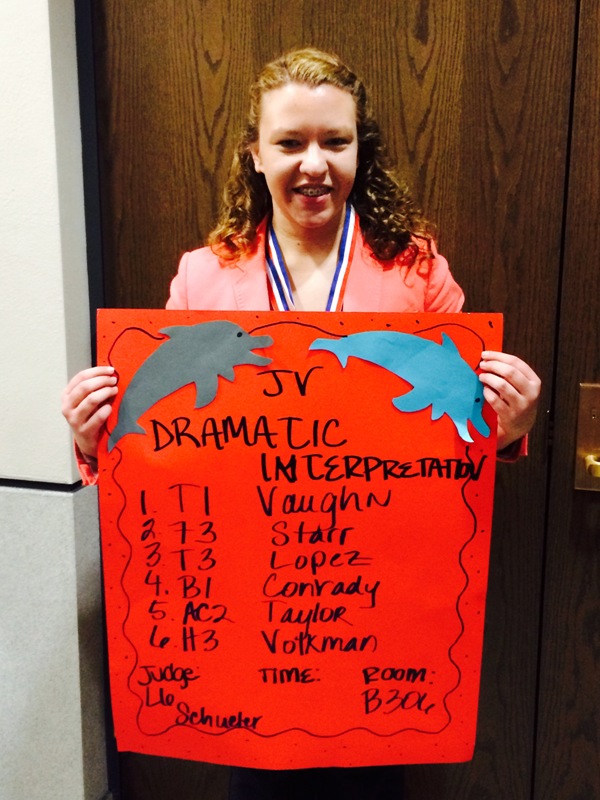 JV
DRAMATIC
INTERPRETATION
1. T1 Vaughn
2 73 Starr
3. T3 Lopez
4. B1 Conrady
5. AC2 Taylor
6. H3 Volkman
Judge: TIME: ROOM:
B306
Schueler